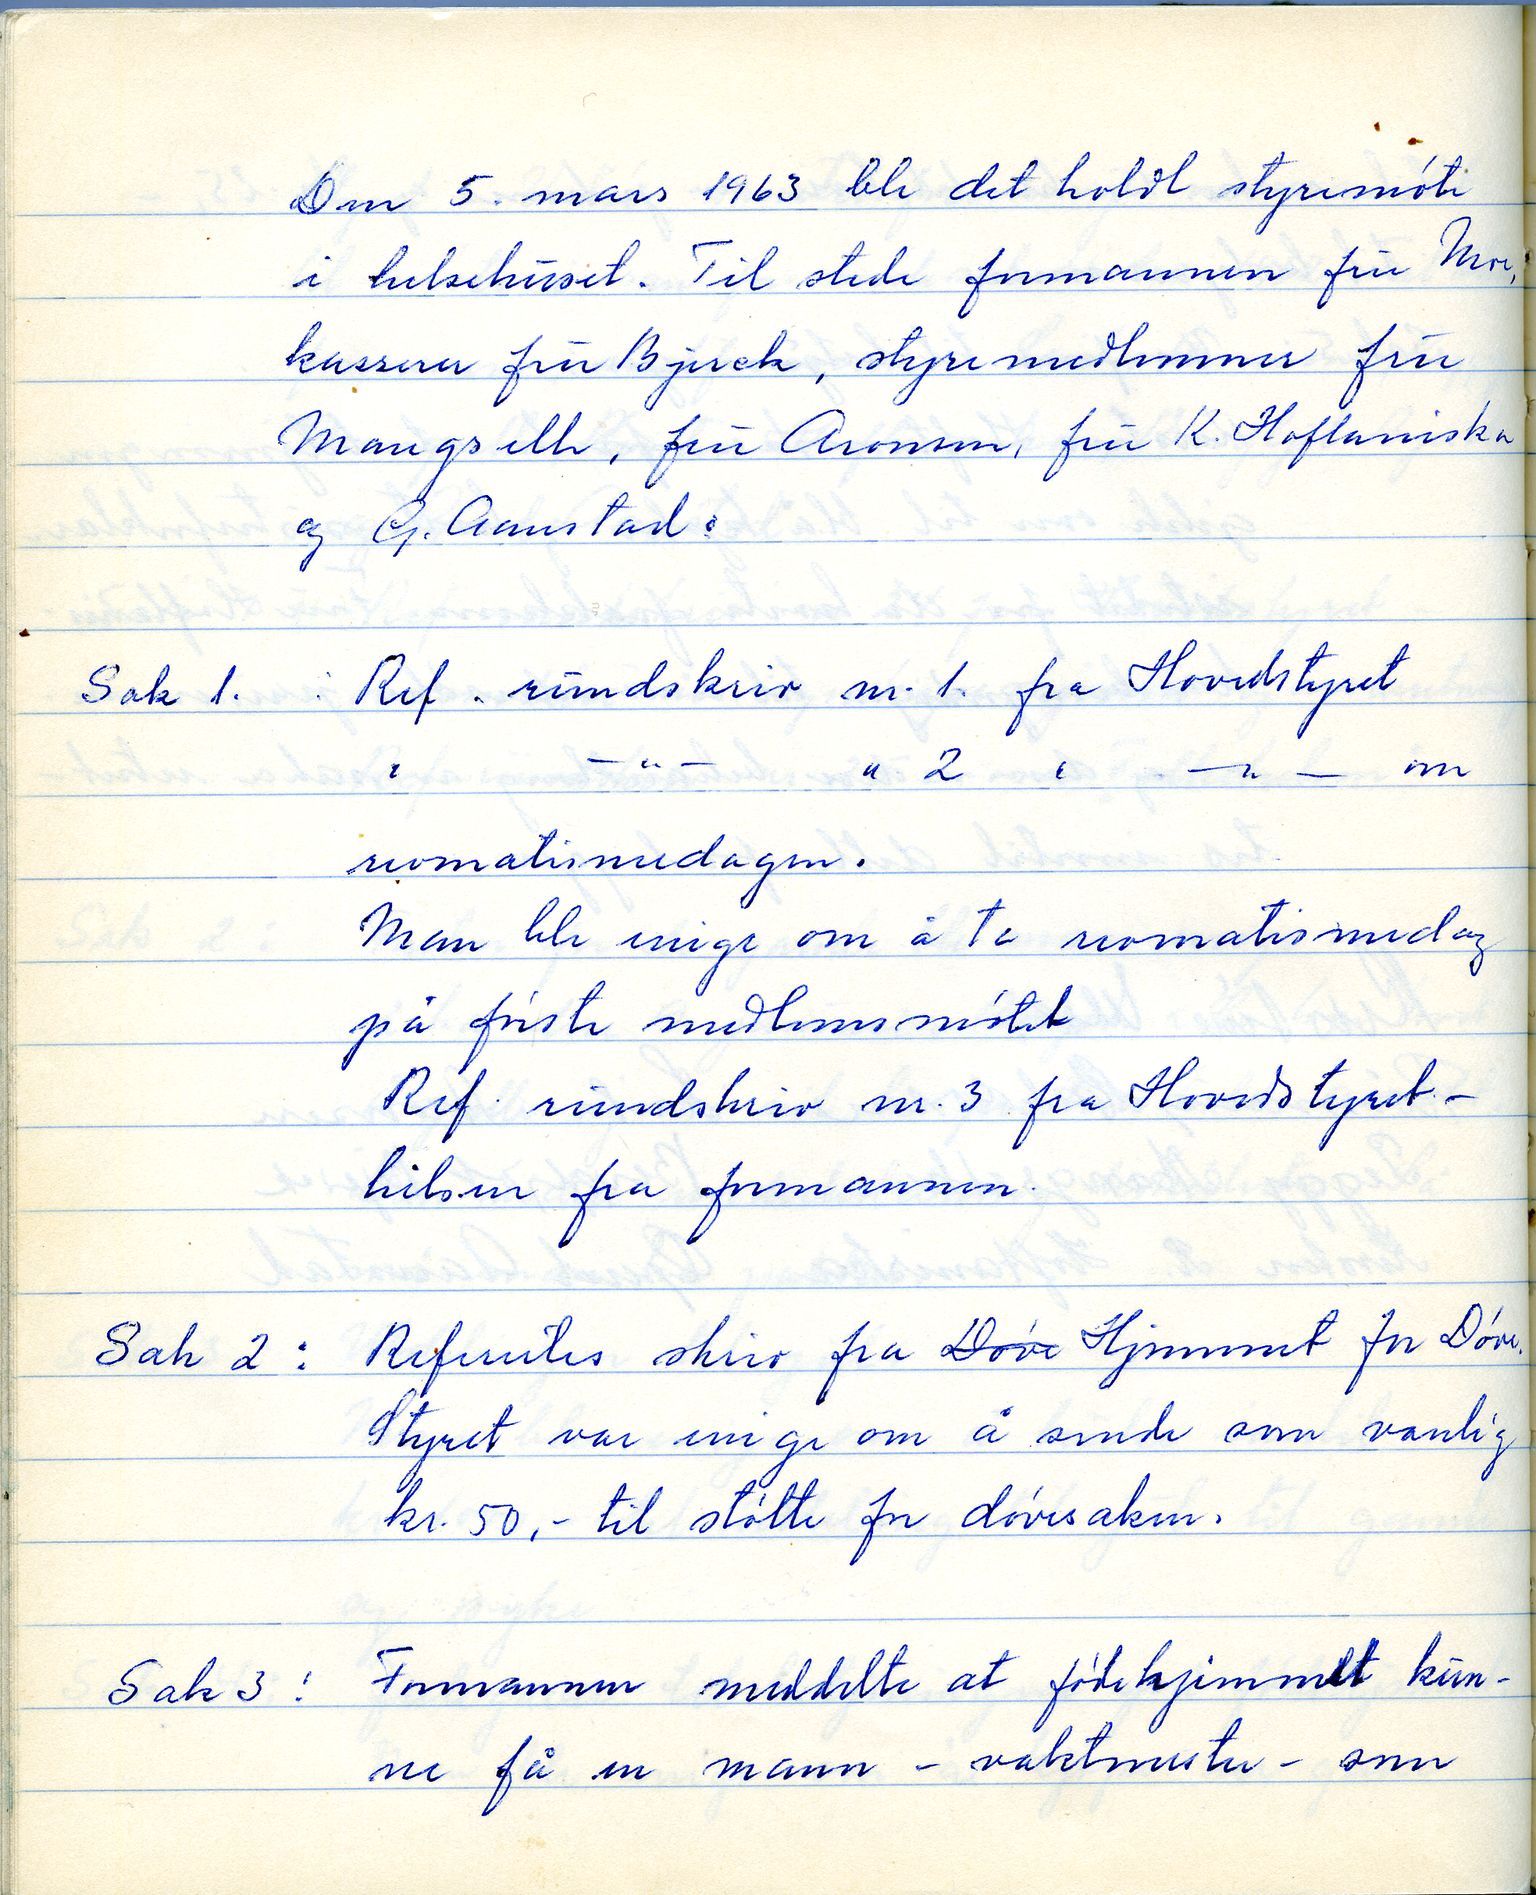 Den 5. mars 1963 ble det holdt styremøte
i helsehuset. Til stede formannen fru Moe,
kasserer fru Bjerck, styremedlemmer fru
Mangselle, fru Aronsen, fru K. Hoflaniska
og G. Aanstad:
Sak 1. : Ref. rundskriv nr. 1. fra Hovedstyret
" —"— " 2 " —"— om
revmatismedagen.
Man ble enige om å ta revmatismedag
på første medlemsmøtet
Ref. rundskriv nr. 3 fra Hovedstyret -
hilsen fra formannen.
Sak 2 : Refertes skriv fra Døve Hjemmet for Døve.
Styret var enige om å sende som vanlig
kr. 50,- til støtte for døvesaken.
Sak 3 : Formannen meddelte at fødehjemmet kun-
ne få en mann - vaktmester - som